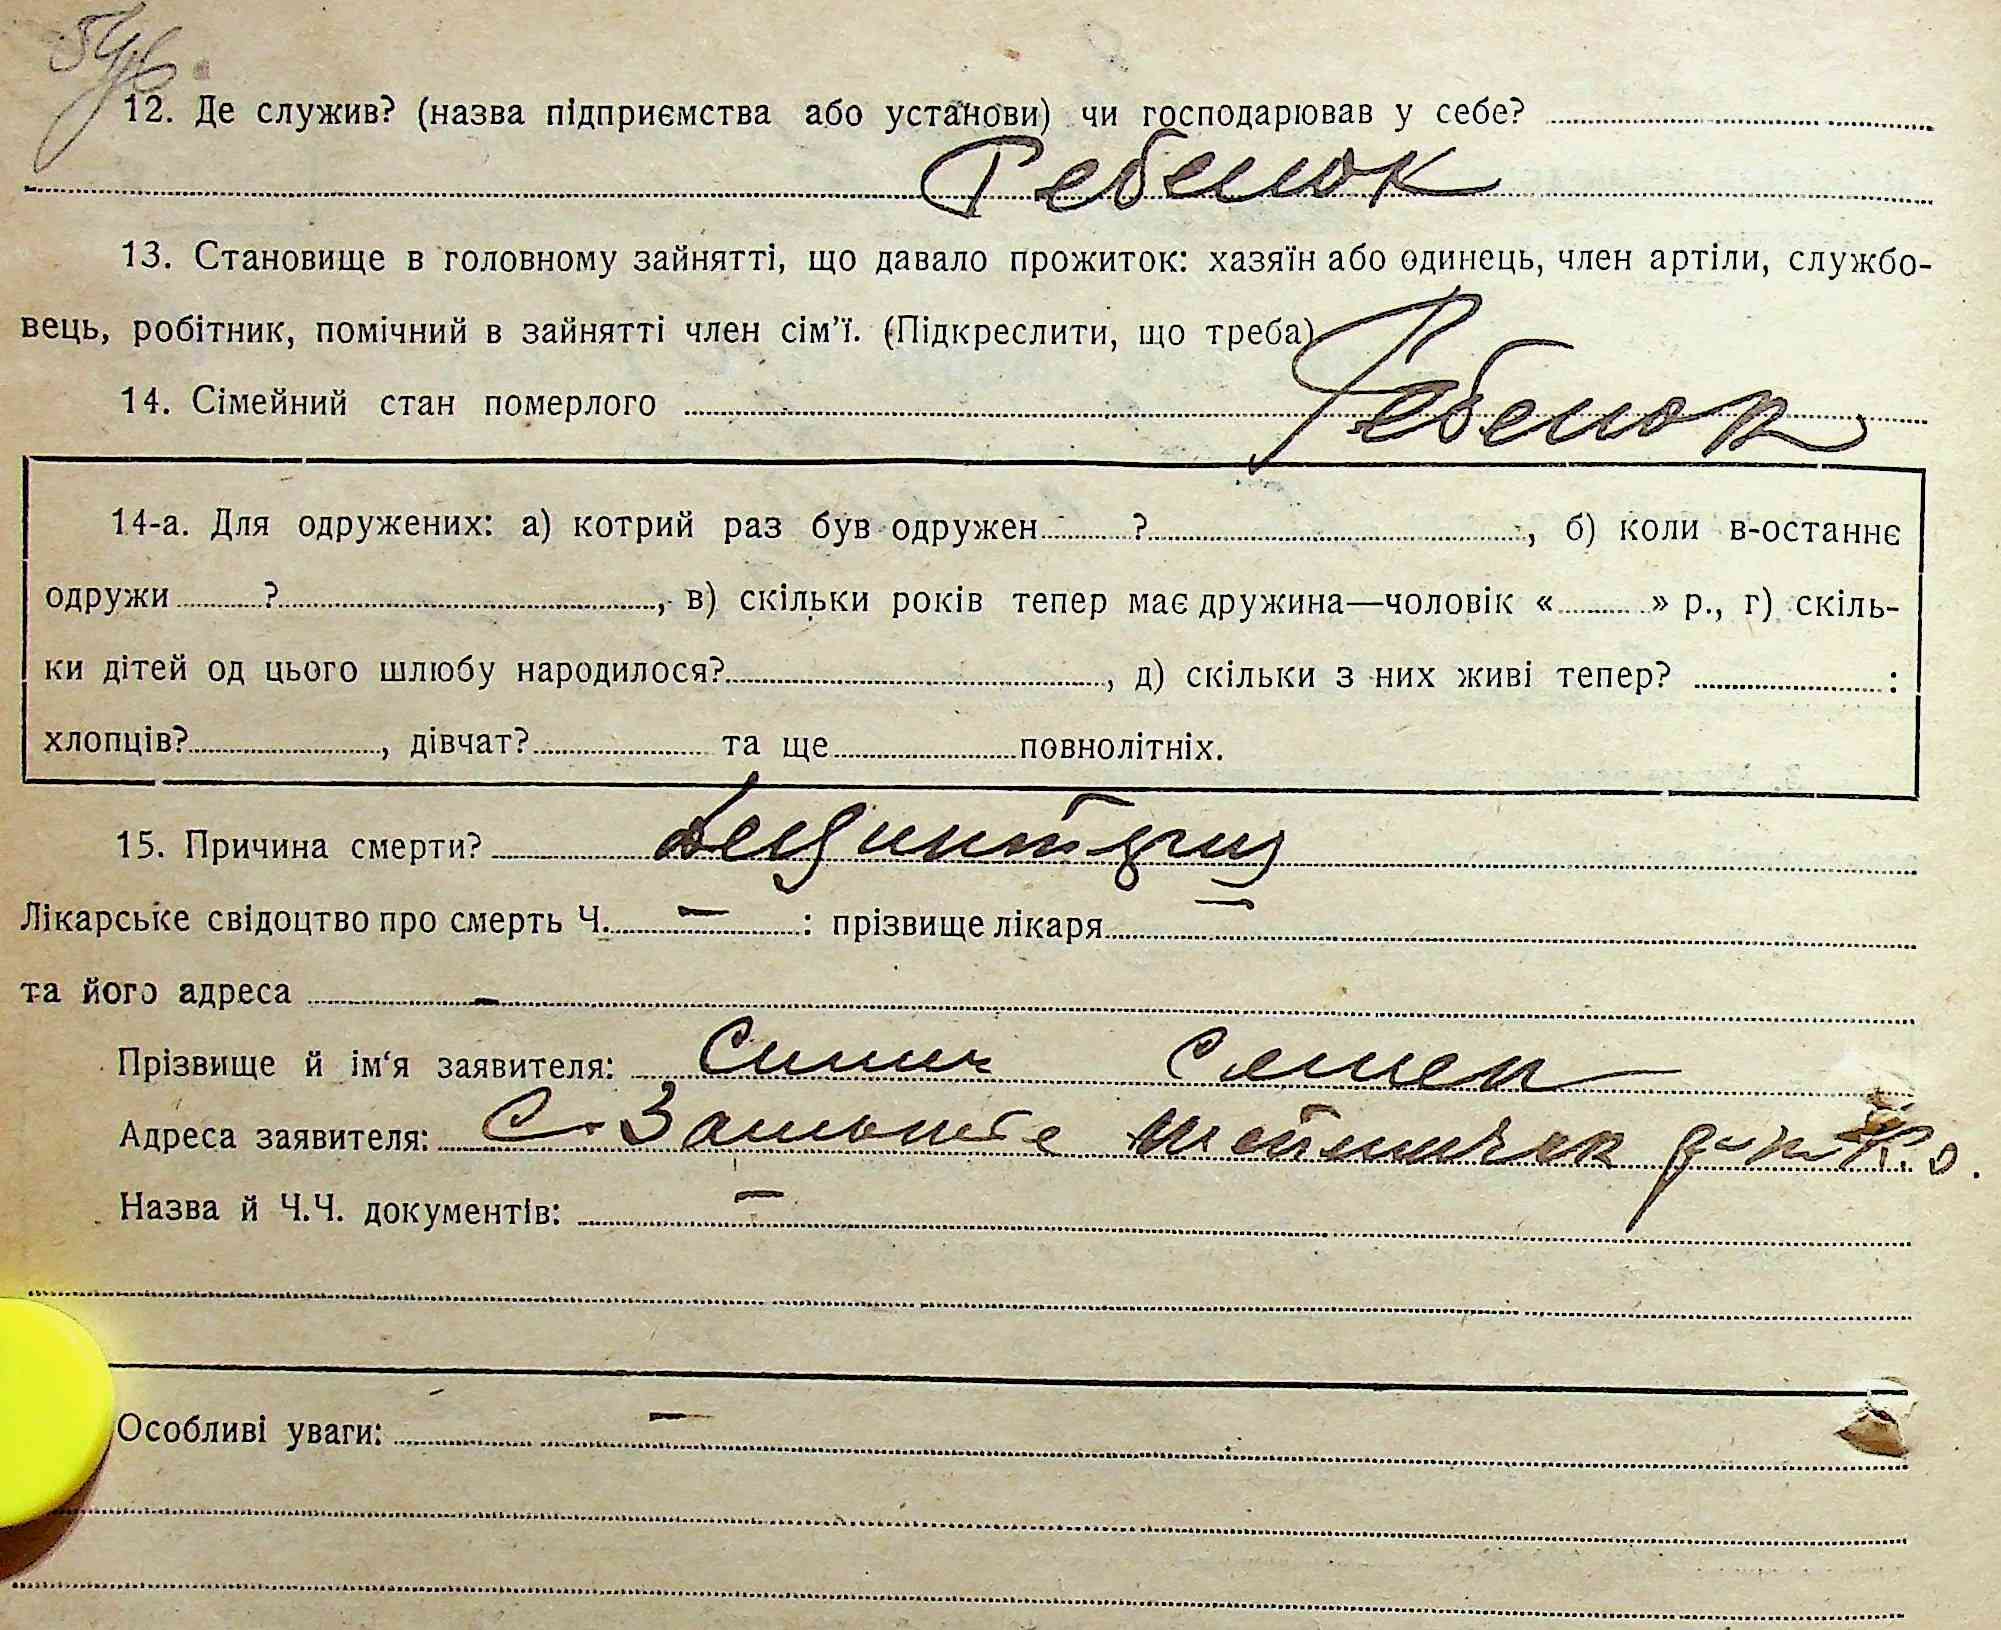 12. Де служив? (назва підприємства або установи) чи господарював у себе?
Ребенок
13. Становище в головному зайнятті, що давало прожиток: хазяїн або одинець, член артіли, службо-
вець, робітник, помічний в зайнятті член сім’ї. (Підкреслити, що треба)
14. Сімейний стан померлого Ребенок
14-а. Для одружених: а) котрий раз був одружен ? , б) коли в-останнє
одружи ? , в) скільки років тепер має дружина—чоловік « » р., г) скіль-
ки дітей од цього шлюбу народилося? , д) скільки з них живі тепер? :
хлопців? , дівчат? та ще повнолітніх.
15. Причина смерти?
Лікарське свідоцтво про смерть Ч. — : прізвище лікаря —
та його адреса —
Прізвище й ім‘я заявителя: Семен
Адреса заявителя: С.
Назва й Ч.Ч. документів: —
Особливі уваги: —